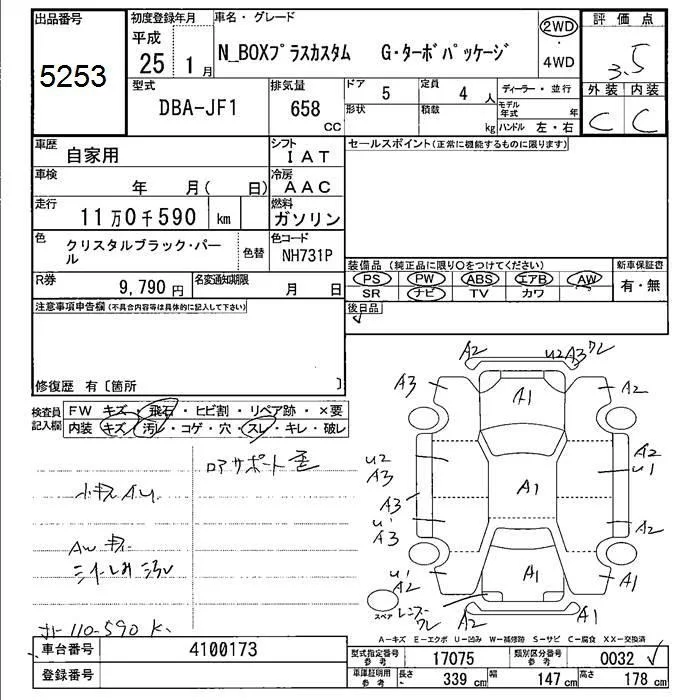 出品番号
5253
初度登録年月
平成
25 1月
車名・グレード
N_BOXプラスカスタム G・ターボパッケージ
2WD
・
4WD
評価点
3.5
外装 内装
C C
型式
DBA-JF1
排気量
658
cc
ドア
5
定員
4 人
形状
積載
kg
ディーラー・並行
モデル
年式 年
ハンドル 左・右
車歴
自家用
シフト
IAT
車検
年 月( 日)
冷房
AAC
走行
11万0千590 km
燃料
ガソリン
色
クリスタルブラック・パー
ル
色替
色コード
NH731P
R券
9,790 円
名変通知期限
月 日
セールスポイント(正常に機能するものに限ります)
装備品(純正品に限り○をつけてください)
PS PW ABS エアB AW
SR ナビ TV カワ
新車保証書
有・無
後日品
注意事項申告欄(不具合内容等は具体的に記入して下さい)
修復歴 有〔箇所 〕
検査員
記入欄
FW キズ・飛石・ヒビ割・リペア跡・×要
内装 キズ・汚レ・コゲ・穴・スレ・キレ・破レ
ロアサポート歪
小キズA.U
AW キズ
110-590 K
A2 U2 A3 ワレ
A3 A1 A2
U2
A3
A2
U1
A3 A1
U1
A3
A2
U1
A2
A1 A1
スペア
A2 A1
A-キズ E-エクボ U-凹み W-補修跡 S-サビ C-腐食 XX-交換済
車台番号
4100173
登録番号
型式指定番号
参考
17075
類別区分番号
参考
0032
車庫証明用
参考
長さ 339 cm 幅 147 cm 高さ 178 cm